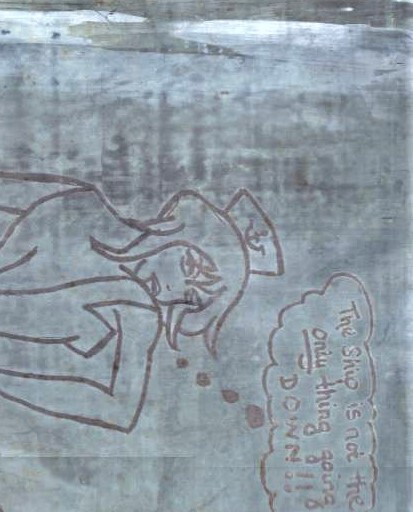 The Ship is not the
only thing going
DOWN!!!